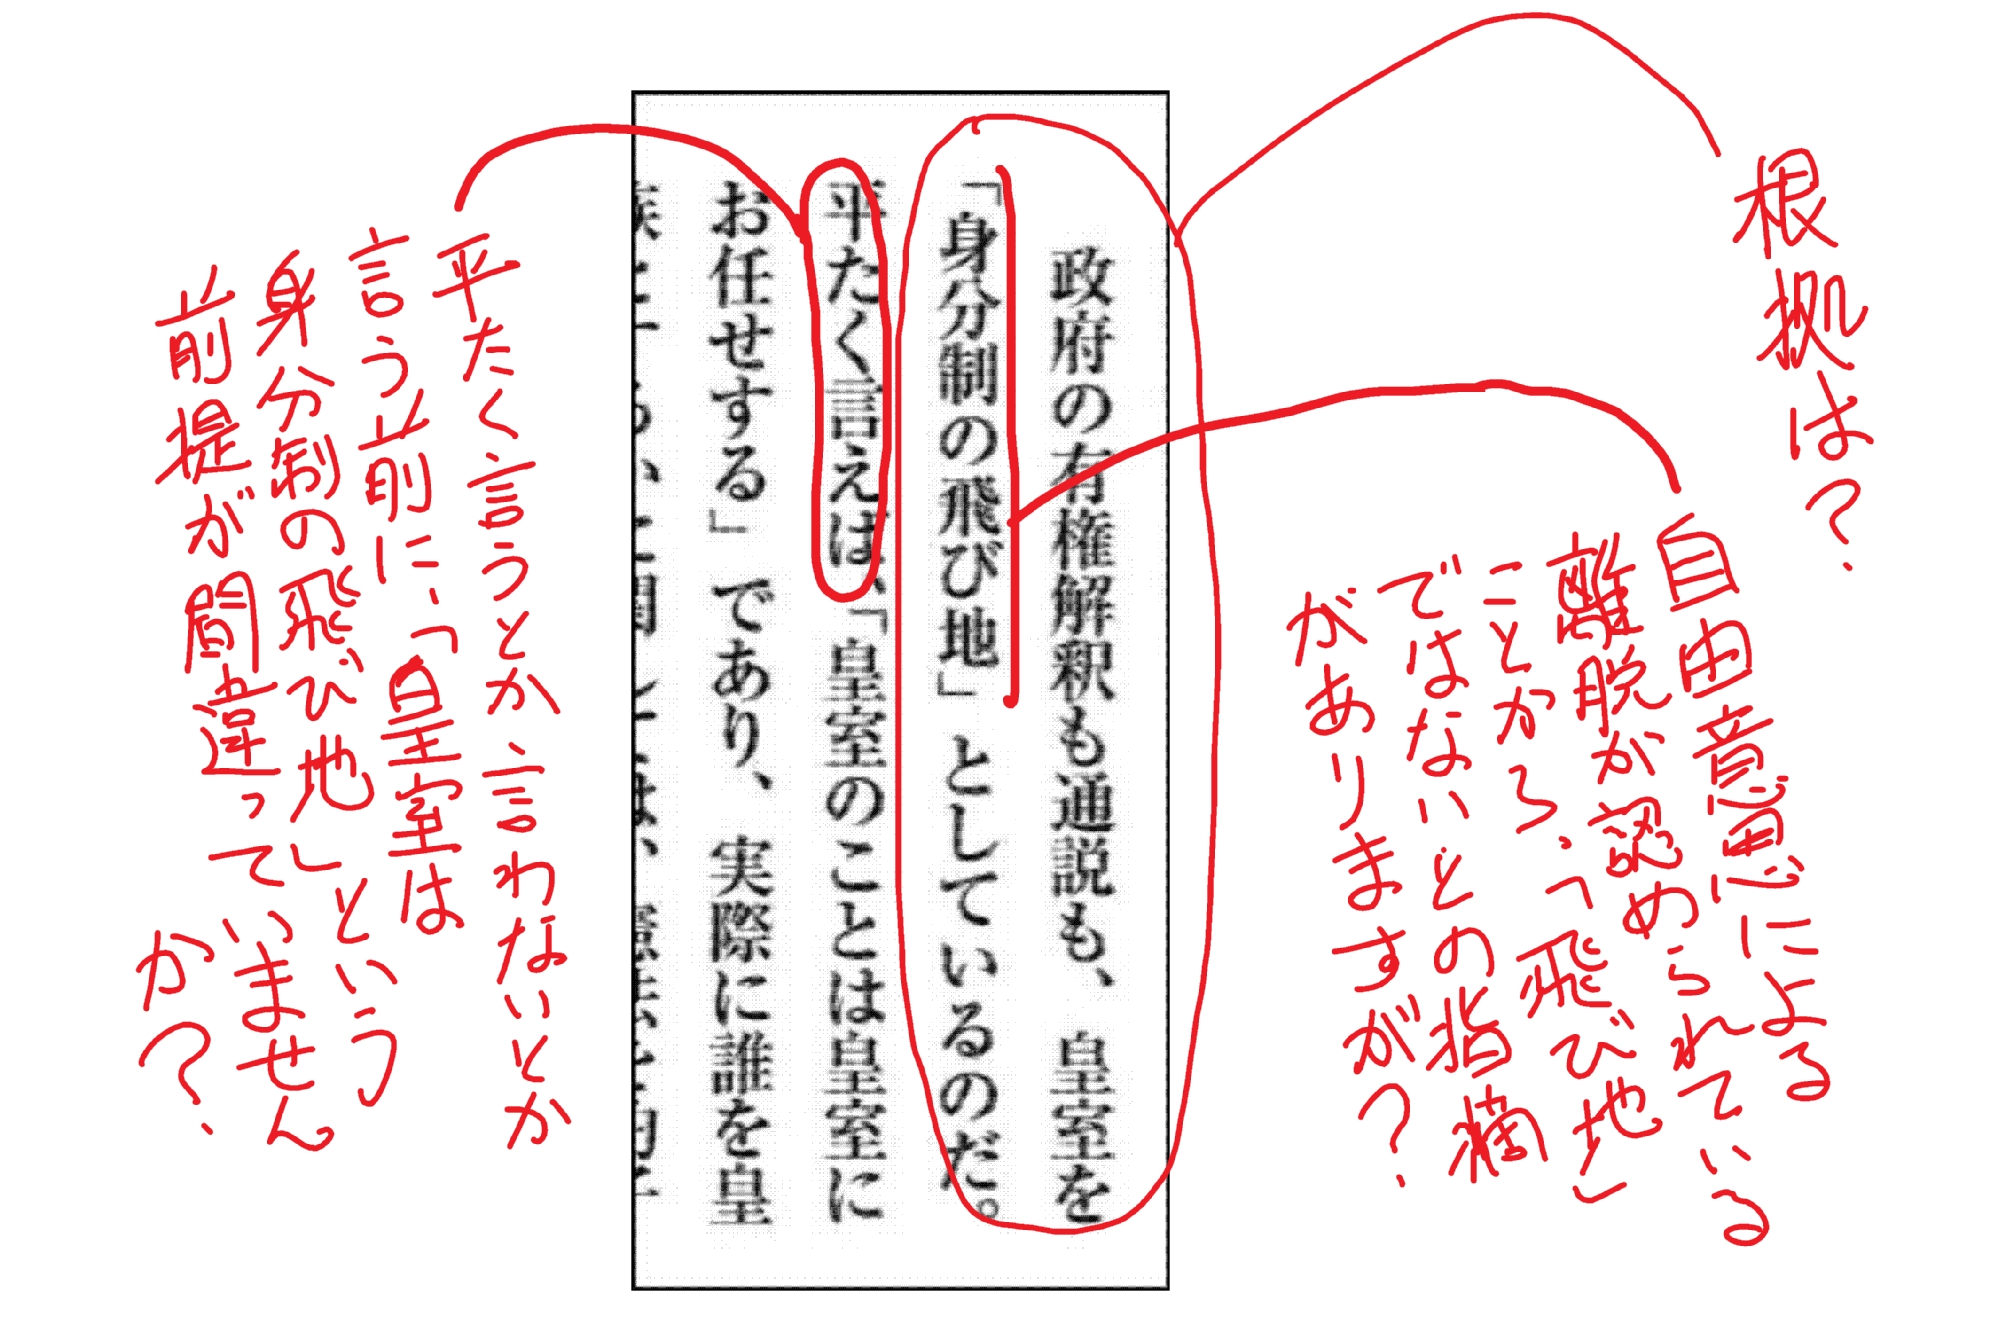 根拠は?
自由意思による
離脱が認められている
ことから、「飛び地」
ではないとの指摘
がありますが?
政府の有権解釈も通説も、皇室を
「身分制の飛び地」としているのだ。
平たく言えば、「皇室のことは皇室に
お任せする」であり、実際に誰を皇
平たく言うとか言わないとか
言う前に、「皇室は
身分制の飛び地」という
前提が間違っていません
か?